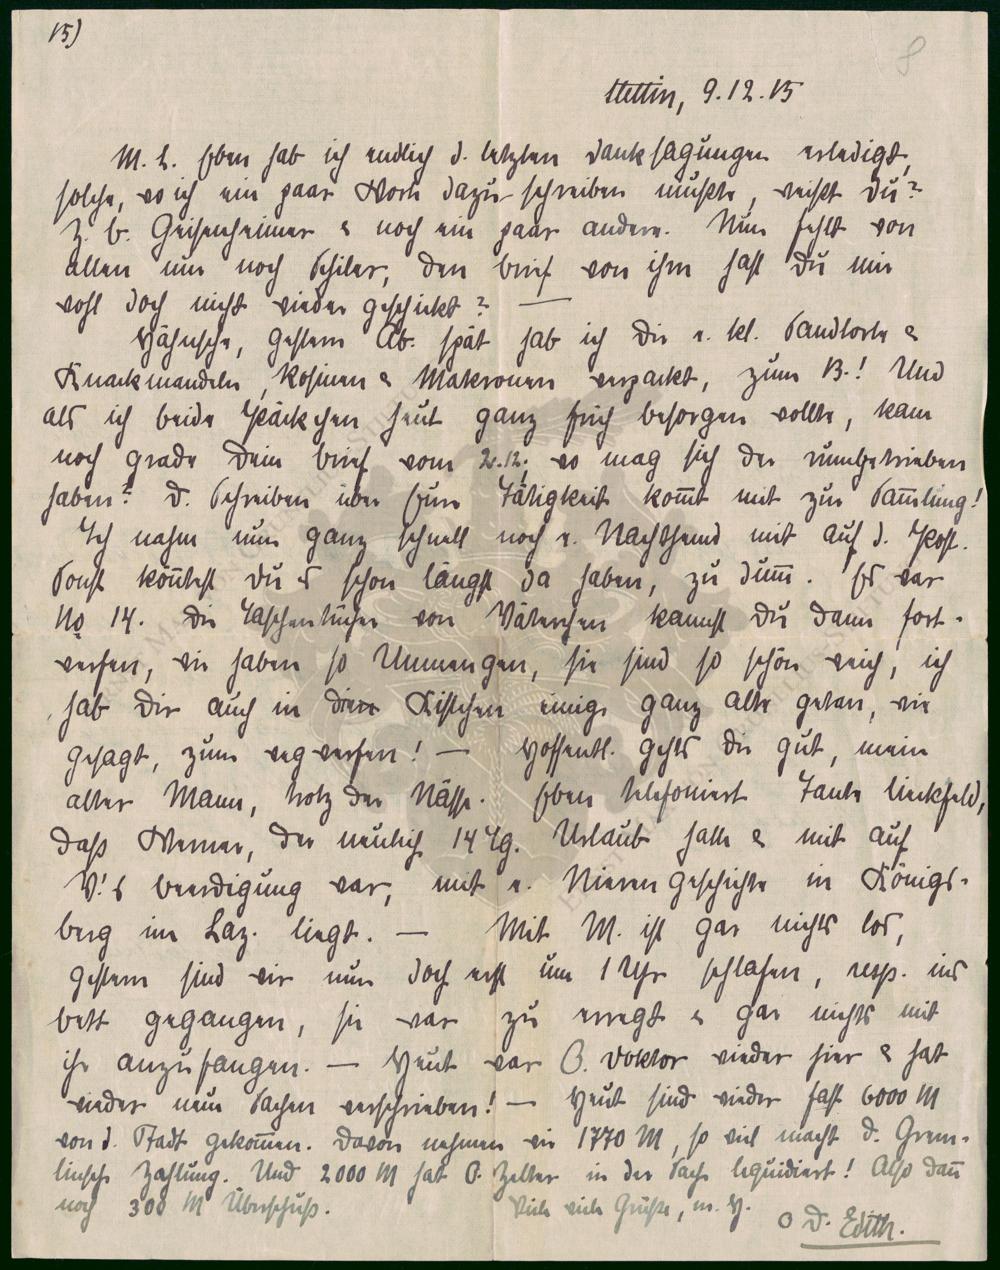 15)
8
Stettin, 9.12.15
M. L. Eben hab ich endlich d. letzten Danksagungen erledigt,
solche, wo ich ein paar Worte dazu schreiben mußte, weißt Du?
Z. B. Geisenheimer & noch ein paar andere. Nun fehlt von
allen nur noch Schiler, den Brief von ihm hast Du mir
wohl doch nicht wieder geschickt? —
Hähnsche, gestern Ab. spät hab ich Dir e. kl. Sandtorte &
Knackmandeln, Rosinen & Makronen verpackt, zum B.! Und
als ich beide Päckchen heut ganz früh besorgen wollte, kam
noch grade Dein Brief vom 2.12., wo mag sich der rumgetrieben
haben? D. Schreiben über Eure Tätigkeit kom̄t mit zur Sam̄lung!
Ich nahm nun ganz schnell noch e. Nachthemd mit auf d. Post.
Sonst kön̄test Du es schon längst da haben, zu dum̄. Es war
No 14. Die Taschentücher von Väterchen kannst Du dann fort-
werfen, wir haben so Unmengen, sie sind so schön weich, ich
hab Dir auch in Kistchen einige ganz alte getan, wie
gesagt, zum wegwerfen! — Hoffentl. gehts Dir gut, mein
alter Mann, trotz der Nässe. Eben telefoniert Tante Lieckfeld,
daß Werner, der neulich 14 Tg. Urlaub hatte & mit auf
V.'s Beerdigung war, mit e. Nierengeschichte in Königs-
berg im Laz. liegt. — Mit M. ist gar nichts los,
gestern sind wir nun doch erst um 1 Uhr schlafen, resp. ins
Bett gegangen, sie war zu erregt & gar nichts mit
ihr anzufangen. — Heut war O. Doktor wieder hier & hat
wieder neue Sachen verschrieben! — Heut sind wieder fast 6000 M
von d. Stadt gekom̄en. Davon nehmen wir 1770 M, so viel macht d. Grem-
linsche Zahlung. Und 2000 M hat O. Zelter in der Sache liquidiert! Also dan̄
noch 300 M Überschuß. Viele viele Grüße, m. H.
D. Edith.